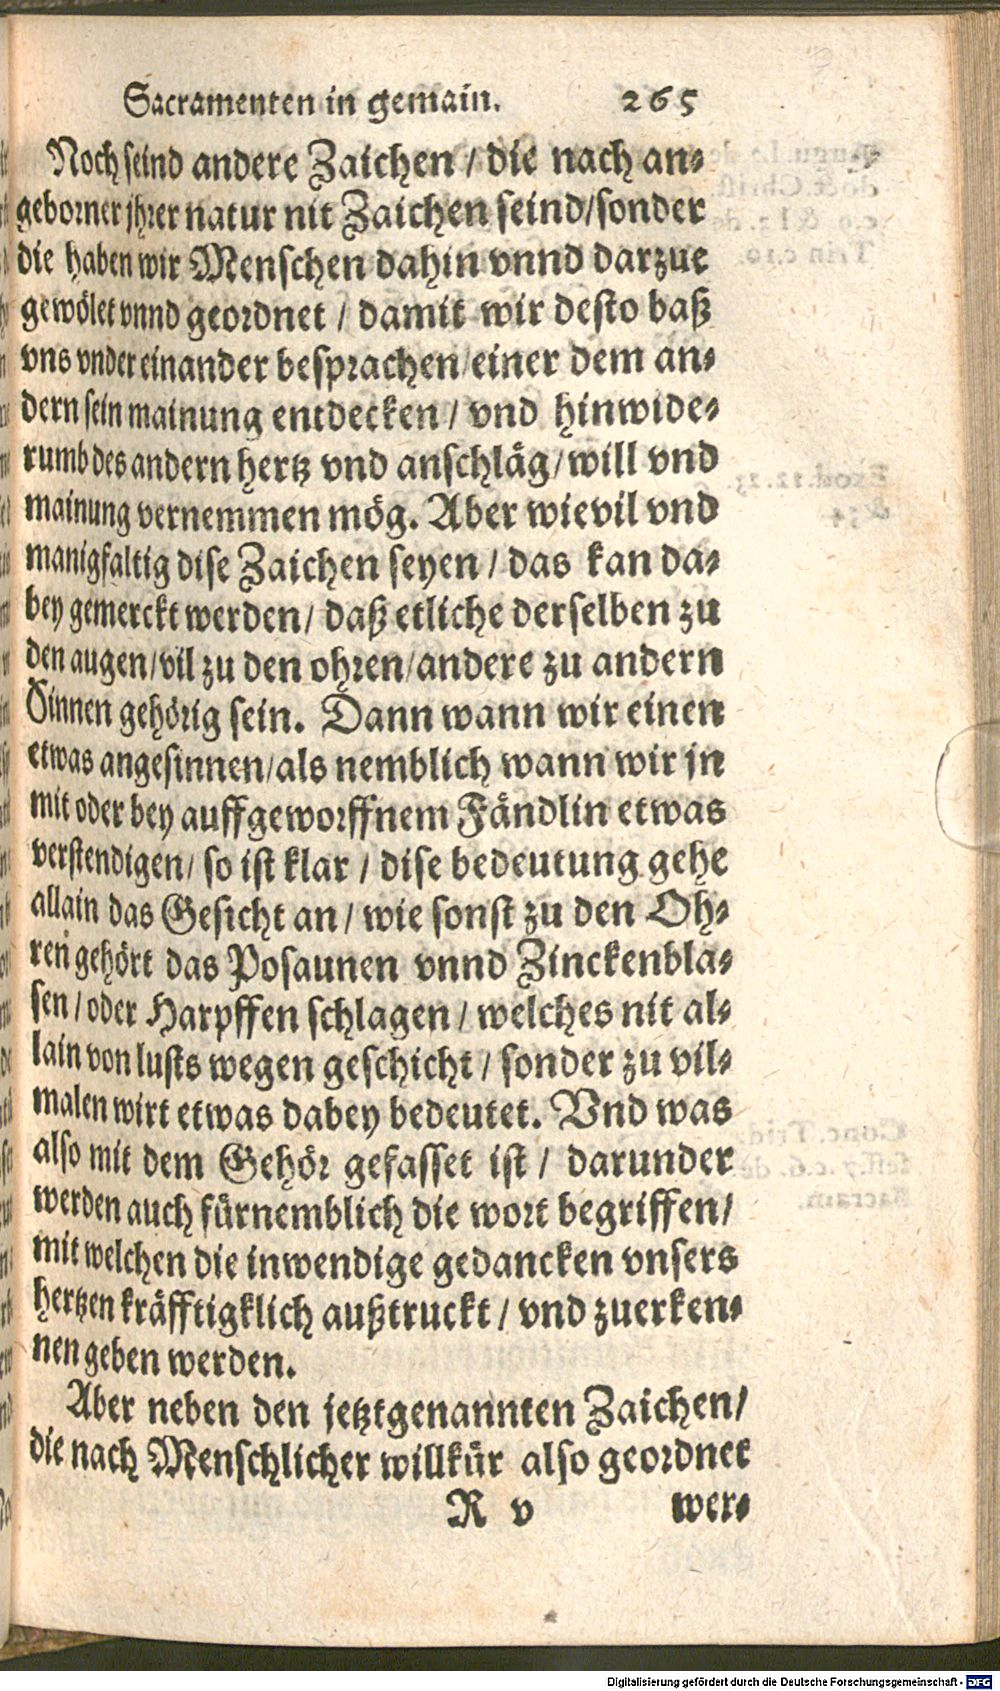 Sacramenten in gemain. 265
Noch seind andere Zaichen / die nach an⸗
geborner jhrer natur nit Zaichen seind/sonder
die haben wir Menschen dahin vnnd darzue
gewölet vnnd geordnet / damit wir desto baß
vns vnder einander besprachen/einer dem an⸗
dern sein mainung entdecken / vnd hinwide⸗
rumb des andern hertz vnd anschläg/will vnd
mainung vernemmen mög. Aber wievil vnd
manigfaltig dise Zaichen seyen / das kan da⸗
bey gemerckt werden/ daß etliche derselben zu
den augen/vil zu den ohren/andere zu andern
Sinnen gehörig sein. Dann wann wir einen
etwas angesinnen/als nemblich wann wir jn
mit oder bey auffgeworffnem Fändlin etwas
verstendigen/ so ist klar / dise bedeutung gehe
allain das Gesicht an / wie sonst zu den Oh⸗
ren gehört das Posaunen vnnd Zinckenbla⸗
sen / oder Harpffen schlagen / welches nit al⸗
lain von lusts wegen geschicht / sonder zu vil⸗
malen wirt etwas dabey bedeutet. Vnd was
also mit dem Gehör gefasset ist / darunder
werden auch fürnemblich die wort begriffen/
mit welchen die inwendige gedancken vnsers
hertzen kräfftigklich außtruckt / vnd zuerken⸗
nen geben werden.
Aber neben den jetztgenannten Zaichen/
die nach Menschlicher willkür also geordnet
R v wer⸗
Digitalisierung gefördert durch die Deutsche Forschungsgemeinschaft - DFG